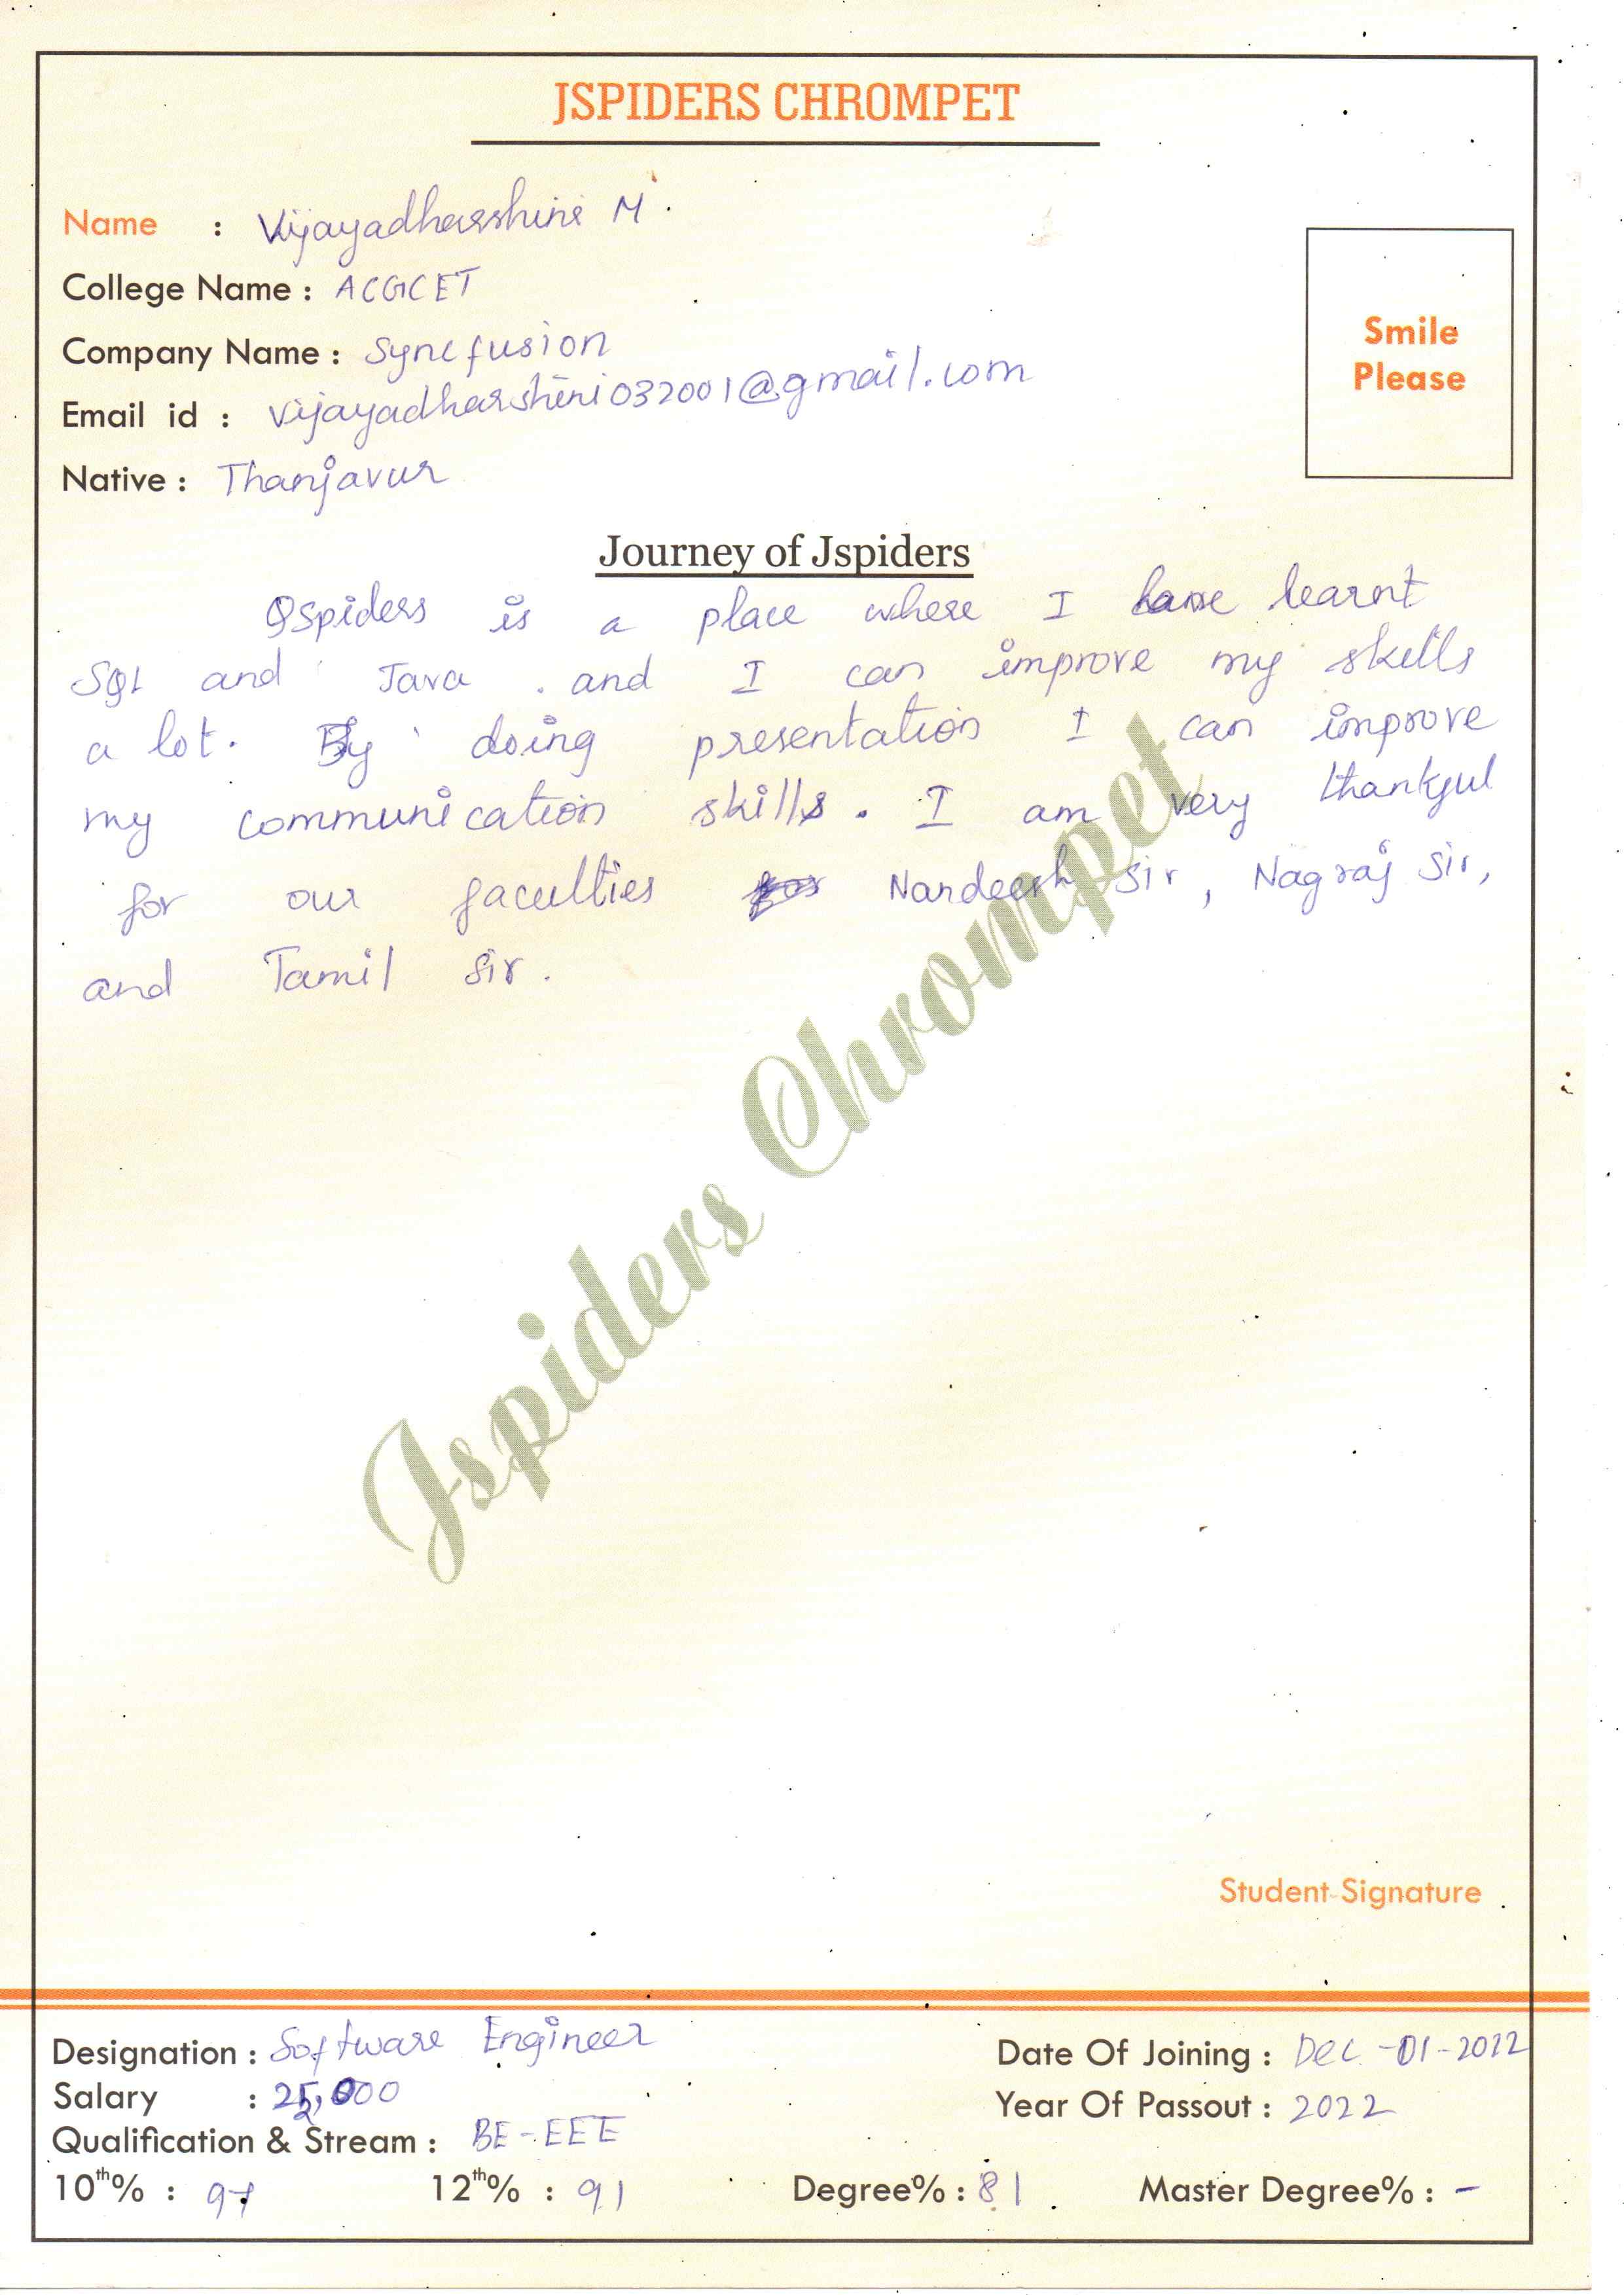 JSPIDERS CHROMPET
Name : Vijayadharshini M.
College Name : ACGCET
Company Name : Syncfusion
Email id : vijayadharshini032001@gmail.com
Native : Thanjavur
Smile
Please
Journey of Jspiders
QSpiders is a place where I have learnt
SQL and Java . and I can improve my skills
a lot. By doing presentation I can improve
my communication skills. I am very thankful
for our faculties Nardeesh sir, Nagraj sir,
and Tamil sir.
Jspiders Chrompet
Student Signature
Designation : Software Engineer
Date Of Joining : Dec -01-2022
Salary : 25,000
Year Of Passout : 2022
Qualification & Stream : BE-EEE
10th% : 97 12th% : 91 Degree% : 81 . Master Degree% : -